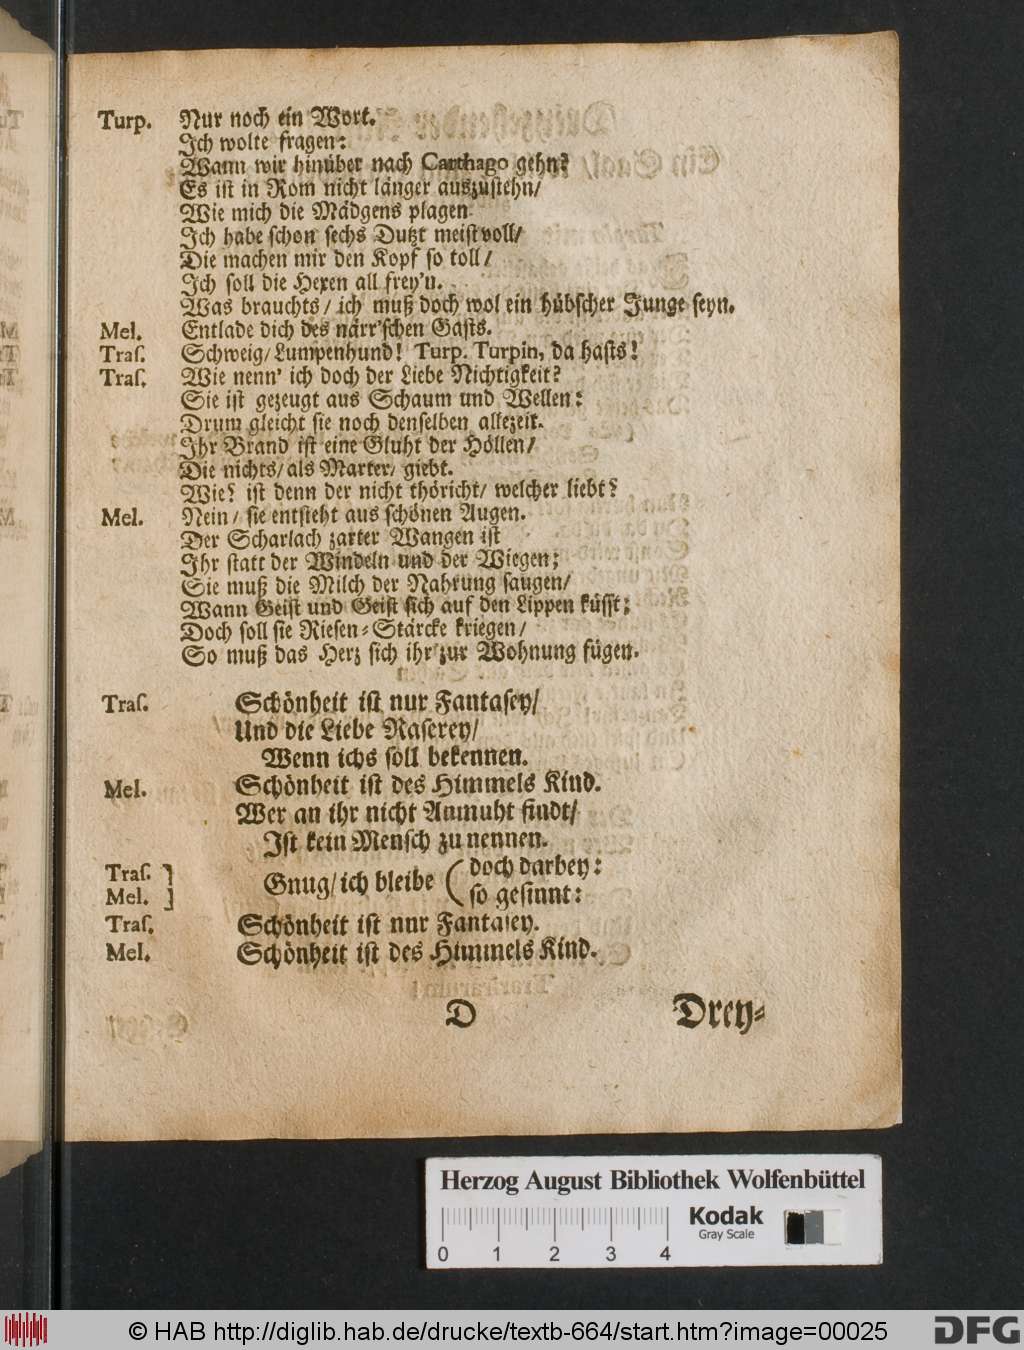 Turp. Nur noch ein Wort.
Ich wolte fragen:
Wann wir hinüber nach Carthago gehn?
Es ist in Rom nicht länger auszustehn/
Wie mich die Mädgens plagen
Ich habe schon sechs Dutzt meist voll/
Die machen mir den Kopf so toll/
Ich soll die Hexen all frey'n.
Was brauchts/ ich muß doch wol ein hübscher Junge seyn.
Mel. Entlade dich des närr'schen Gasts.
Tras. Schweig/ Lumpenhund! Turp. Turpin, da hasts!
Tras. Wie nenn' ich doch der Liebe Nichtigkeit?
Sie ist gezeugt aus Schaum und Wellen:
Drum gleicht sie noch denselben allezeit.
Ihr Brand ist eine Gluht der Höllen/
Die nichts/ als Marter/ giebt.
Wie? ist denn der nicht thöricht/ welcher liebt?
Mel. Nein/ sie entsteht aus schönen Augen.
Der Scharlach zarter Wangen ist
Ihr statt der Windeln und der Wiegen;
Sie muß die Milch der Nahrung saugen/
Wann Geist und Geist sich auf den Lippen küsst;
Doch soll sie Riesen-Stärcke kriegen/
So muß das Herz sich ihr zur Wohnung fügen.
Tras. Schönheit ist nur Fantasey/
Und die Liebe Raserey/
Wenn ichs soll bekennen.
Mel. Schönheit ist des Himmels Kind.
Wer an ihr nicht Anmuht findt/
Ist kein Mensch zu nennen.
Tras. ] Gnug/ ich bleibe ( doch darbey:
Mel. ] so gesinnt:
Tras. Schönheit ist nur Fantasey.
Mel. Schönheit ist des Himmels Kind.
D Drey-
Herzog August Bibliothek Wolfenbüttel
0 1 2 3 4
Kodak
Gray Scale
© HAB http://diglib.hab.de/drucke/textb-664/start.htm?image=00025
DFG